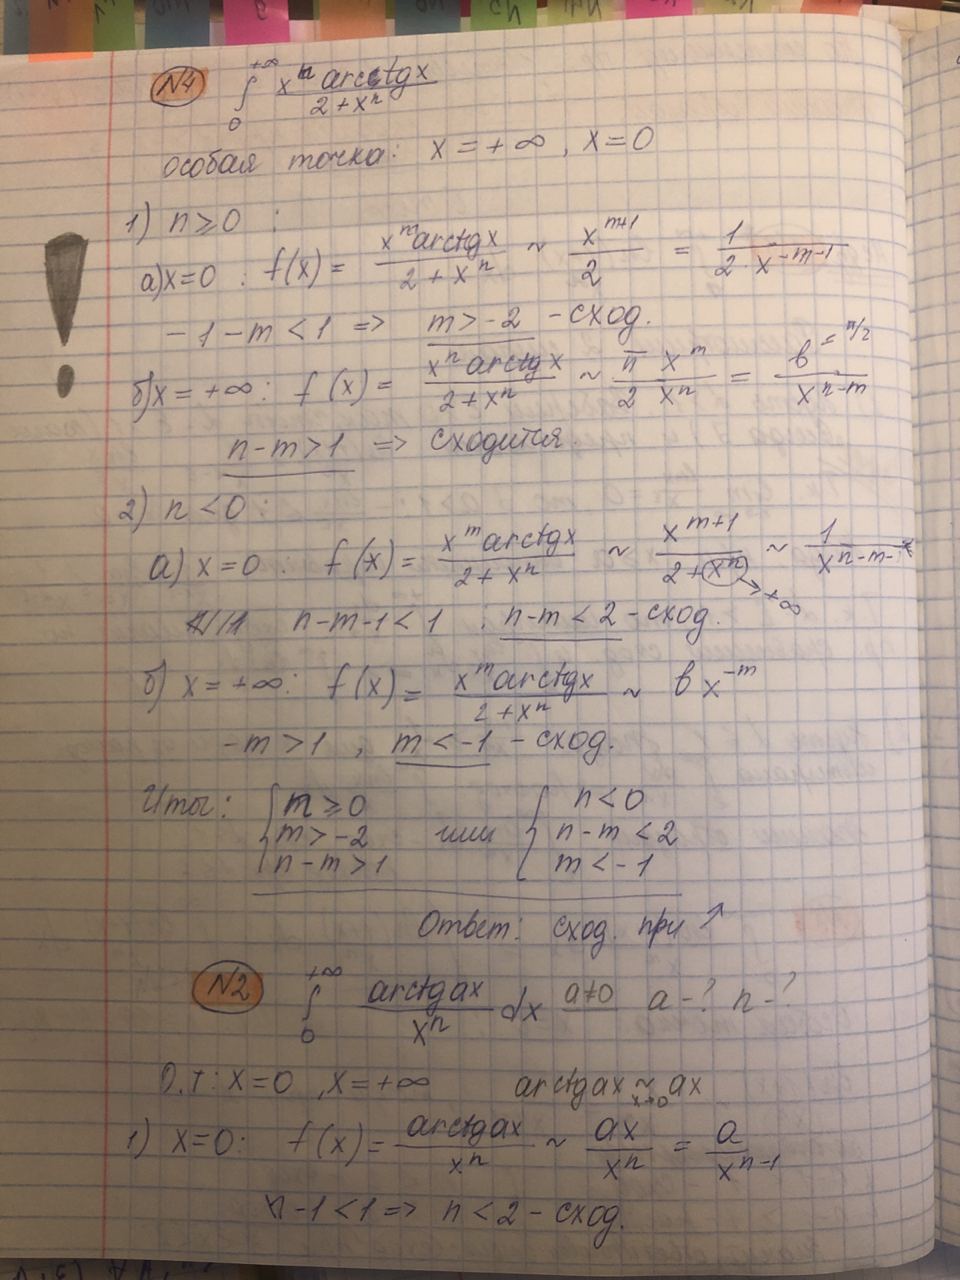 N4 ∫₀^{+∞} x^m arctg x / (2 + x^n)
особая точка: x = +∞, x = 0
1) n ≥ 0 :
а) x=0 : f(x) = x^m arctg x / (2 + x^n) ~ x^{m+1} / 2 = 1 / (2 · x^{-m-1})
-1-m < 1 => m > -2 - сход.
б) x = +∞: f(x) = x^n arctg x / (2 + x^n) ~ π x^m / (2 x^n) = b / x^{n-m} = π/2
n-m > 1 => сходится.
2) n < 0 :
а) x = 0 : f(x) = x^m arctg x / (2 + x^n) ~ x^{m+1} / (2 + x^n) ~ 1 / x^{n-m-1}
→ +∞
n-m-1 < 1 : n-m < 2 - сход.
б) x = +∞: f(x) = x^m arctg x / (2 + x^n) ~ b x^{-m}
-m > 1 , m < -1 - сход.
Итог: { m ≥ 0 или { n < 0
m > -2 n - m < 2
n - m > 1 m < -1
Ответ: сход. при ↗
N2 ∫₀^{+∞} arctg ax / x^n dx a≠0 a - ? n - ?
О.т: x = 0 , x = +∞ arctg ax ~ ax
x→0
1) x=0: f(x) = arctg ax / x^n ~ ax / x^n = a / x^{n-1}
n-1 < 1 => n < 2 - сход.